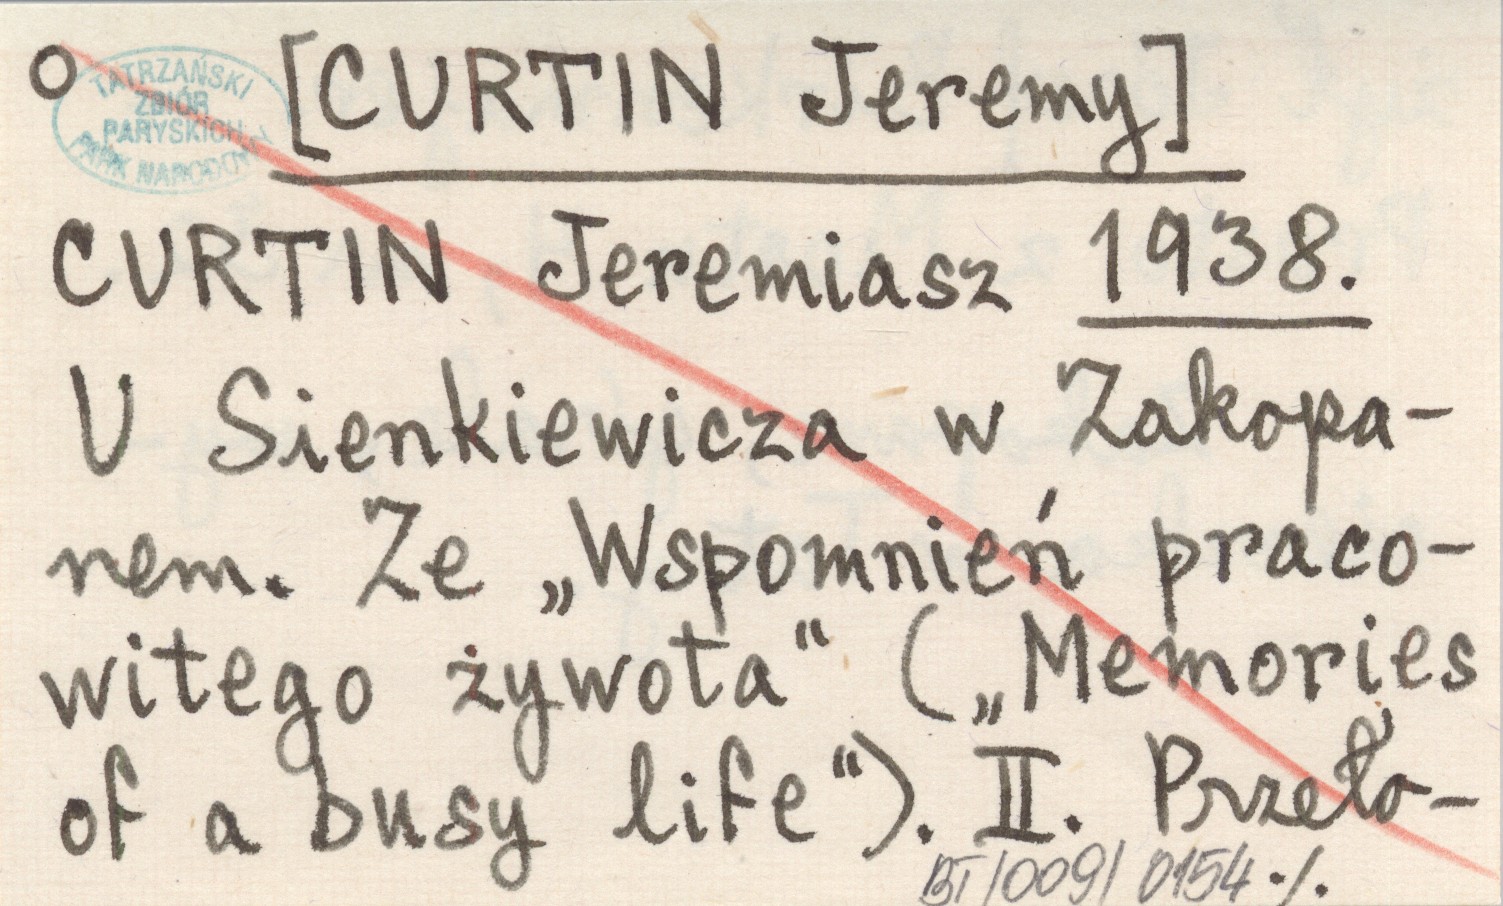 o [CURTIN Jeremy]
TATRZAŃSKI
ZBIÓR
PARYSKICH
PARK NARODOWY
CURTIN Jeremiasz 1938.
U Sienkiewicza w Zakopa-
nem. Ze „Wspomnień praco-
witego żywota“ („Memories
of a busy life“). II. Przeło-
BT/009/ 0154 ./.